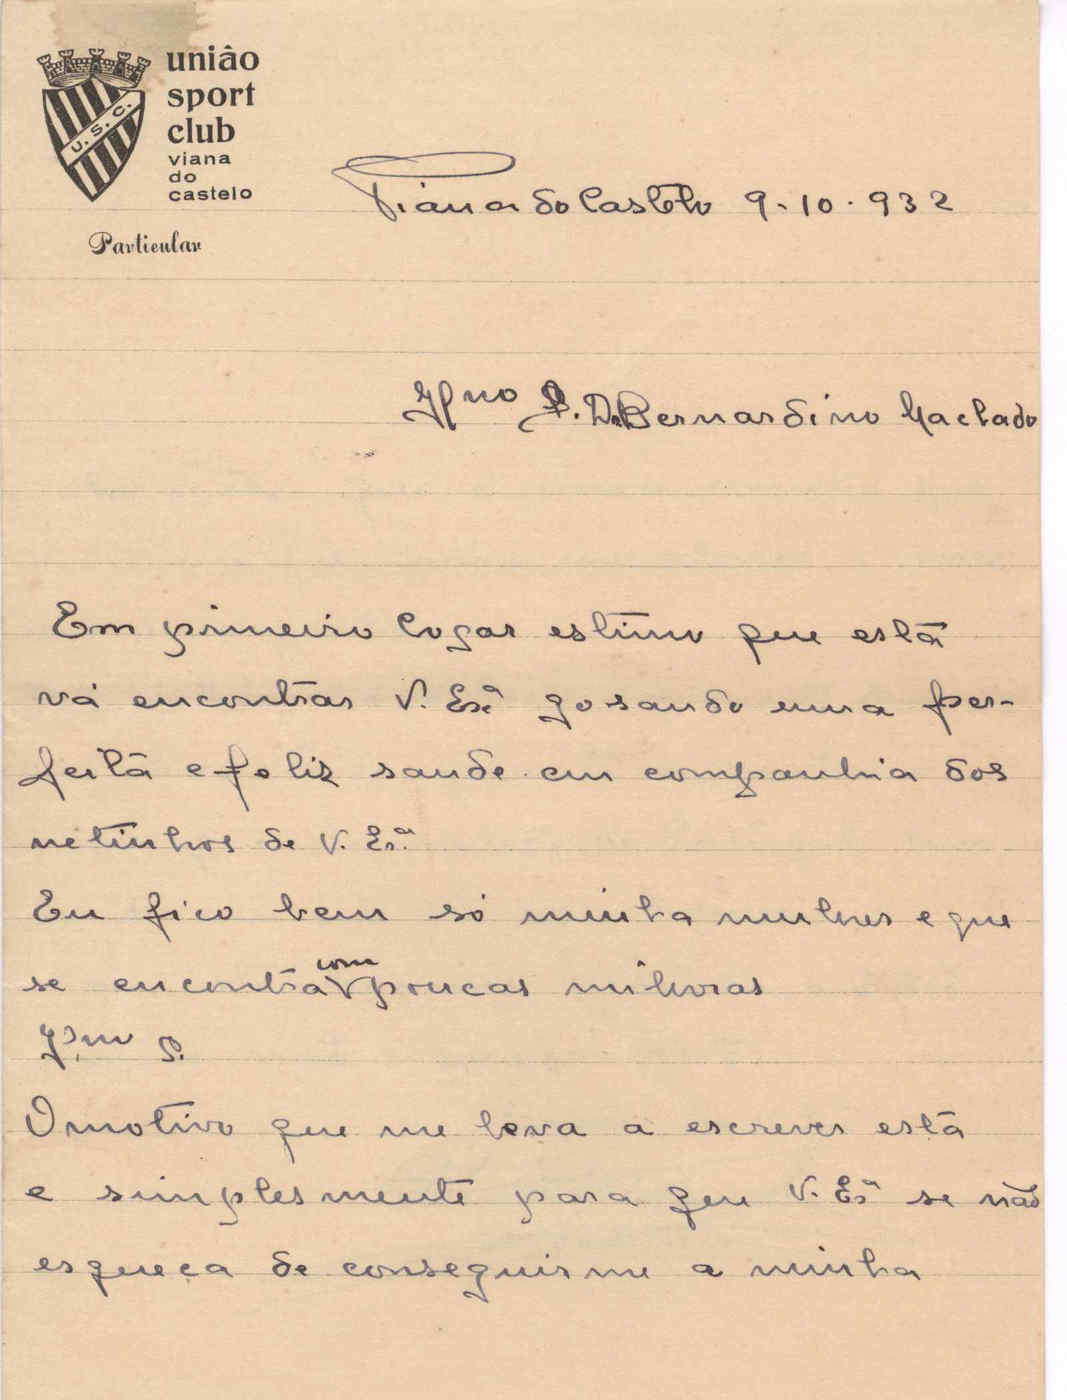 união
sport
club
viana
do
castelo
U.S.C.
Particular
Viana do Castelo 9-10-932
Illmo S. Dr Bernardino Machado
Em primeiro logar estimo que está
vá encontrar V. Exª gosando uma per-
feita e feliz saude em companhia dos
netinhos de V. Exª
Eu fico bem só minha mulher e que
se encontra com poucas milhoras
S.
O motivo que me leva a escrever está
e simplesmente para que V. Exª se não
esqueça de conseguirme a minha